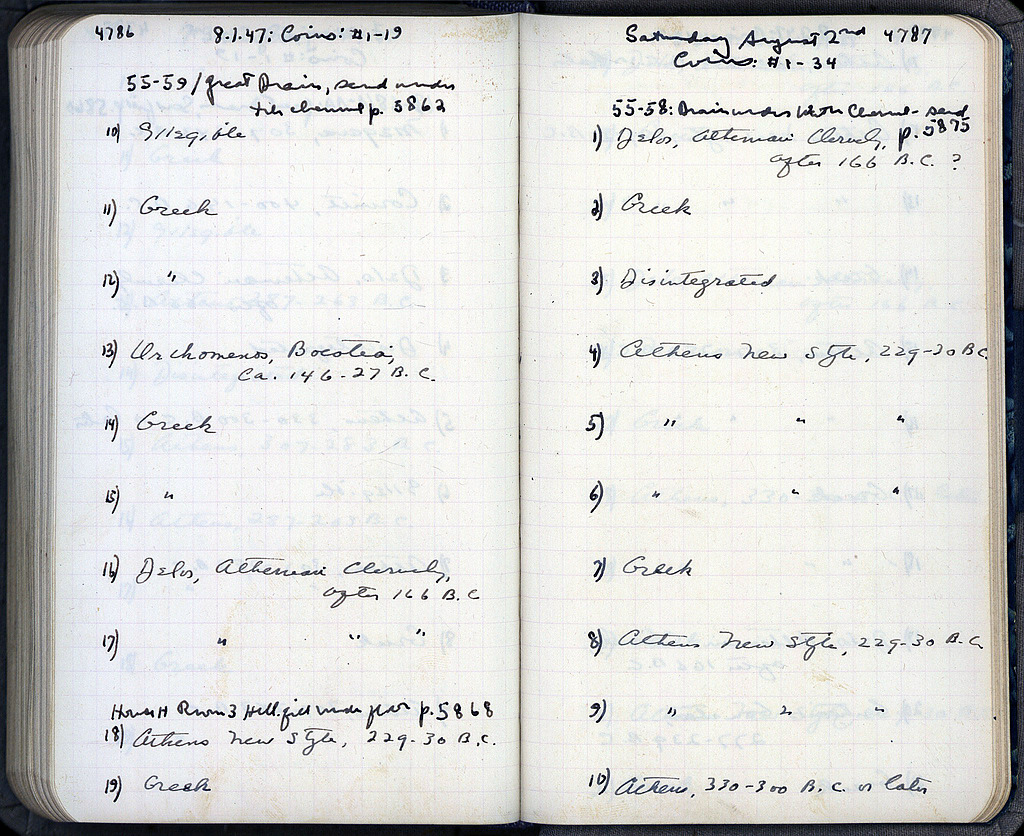 4786 8.1.47: Coins: #1-19
55-59/Great Drain, sand under
tile channel p. 5862
10) Illegible
11) Greek
12) "
13) Orchomenos, Boeotea,
Ca. 146-27 B.C.
14) Greek
15) "
16) Delos, Athenian Cleruchy,
after 166 B.C
17) " " "
House H Room 3 Hell. fill under floor p. 5868
18) Athens New Style, 229-30 B.C.
19) Greek
Saturday August 2nd 4787
Coins: #1-34
55-58: Drain under with Channel - sand
p. 5875
1) Delos, Athenian Cleruchy,
after 166 B.C. ?
2) Greek
3) Disintegrated
4) Athens New Style, 229-30 BC.
5) " " "
6) " " "
7) Greek
8) Athens New Style, 229-30 B.C.
9) " " "
10) Athens, 330-300 B.C. or later